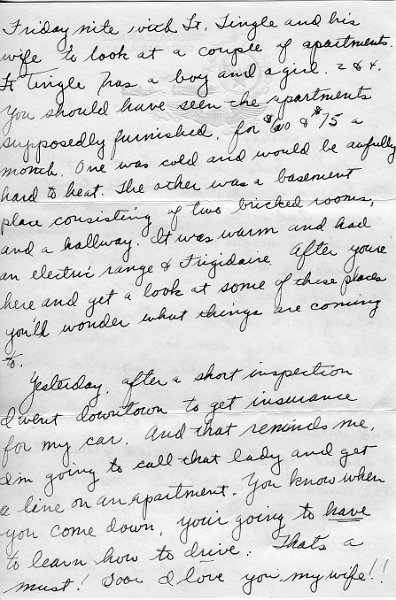 Friday nite with Lt. Tingle and his
wife to look at a couple of apartments.
Lt Tingle has a boy and a girl. 2 & 4.
You should have seen the apartments
supposedly furnished, for $60 & $75 a
month. One was cold and would be awfully
hard to heat. The other was a basement
place consisting of two bricked rooms,
and a hallway. It was warm and had
an electric range & Frigidaire After you're
here and get a look at some of these places
you'll wonder what things are coming
to.
Yesterday, after a short inspection
I went downtown to get insurance
for my car. And that reminds me.
I'm going to call that lady and get
a line on an apartment. You know when
you come down, your going to have
to learn how to drive. Thats a
must! I love you, my wife!!